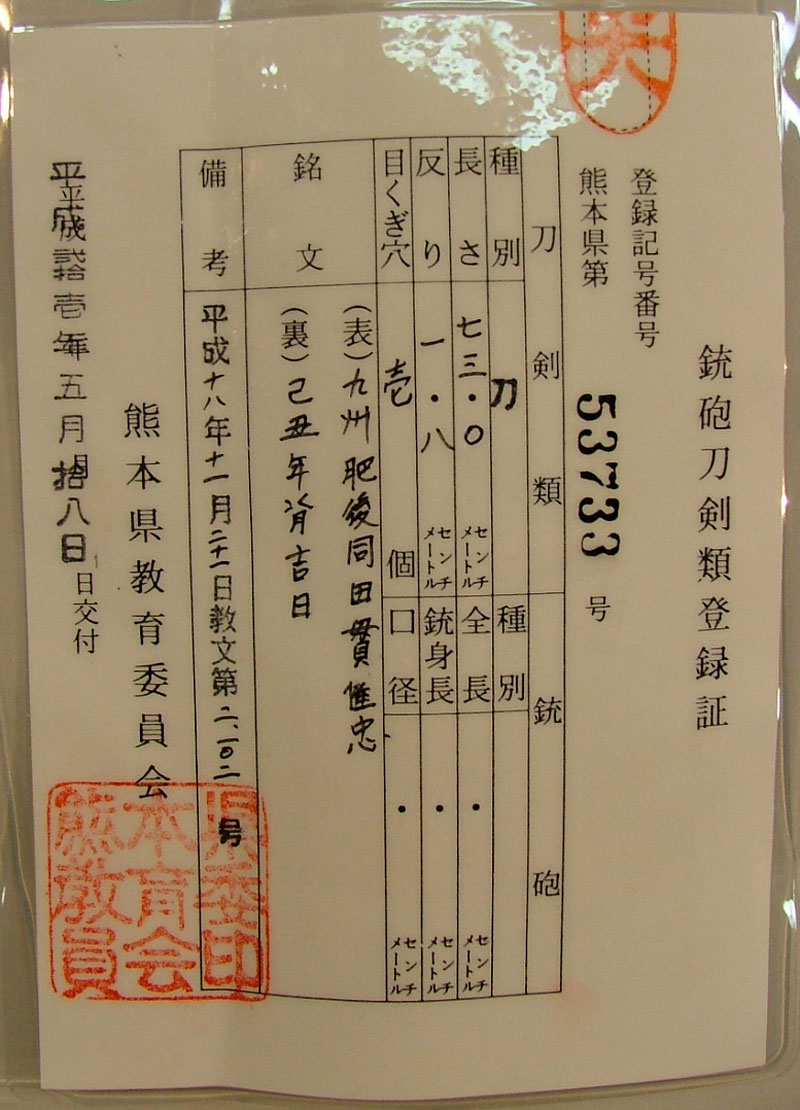 銃砲刀剣類登録証
登録記号番号
熊本県第 53733 号
刀剣類
種別 刀
長さ 七三・〇 センチメートル
反り 一・八 センチメートル
目くぎ穴 壱 個
銃砲
種別
全長 ・ センチメートル
銃身長 ・ センチメートル
口径 ・ センチメートル
銘文
(表)九州肥後同田貫
(裏)己丑年 吉日
備考 平成十八年十一月二十一日教文第二、一〇二号
熊本県教育委員会
平成弐拾壱年五月拾八日
日交付
熊本県教育委員会印